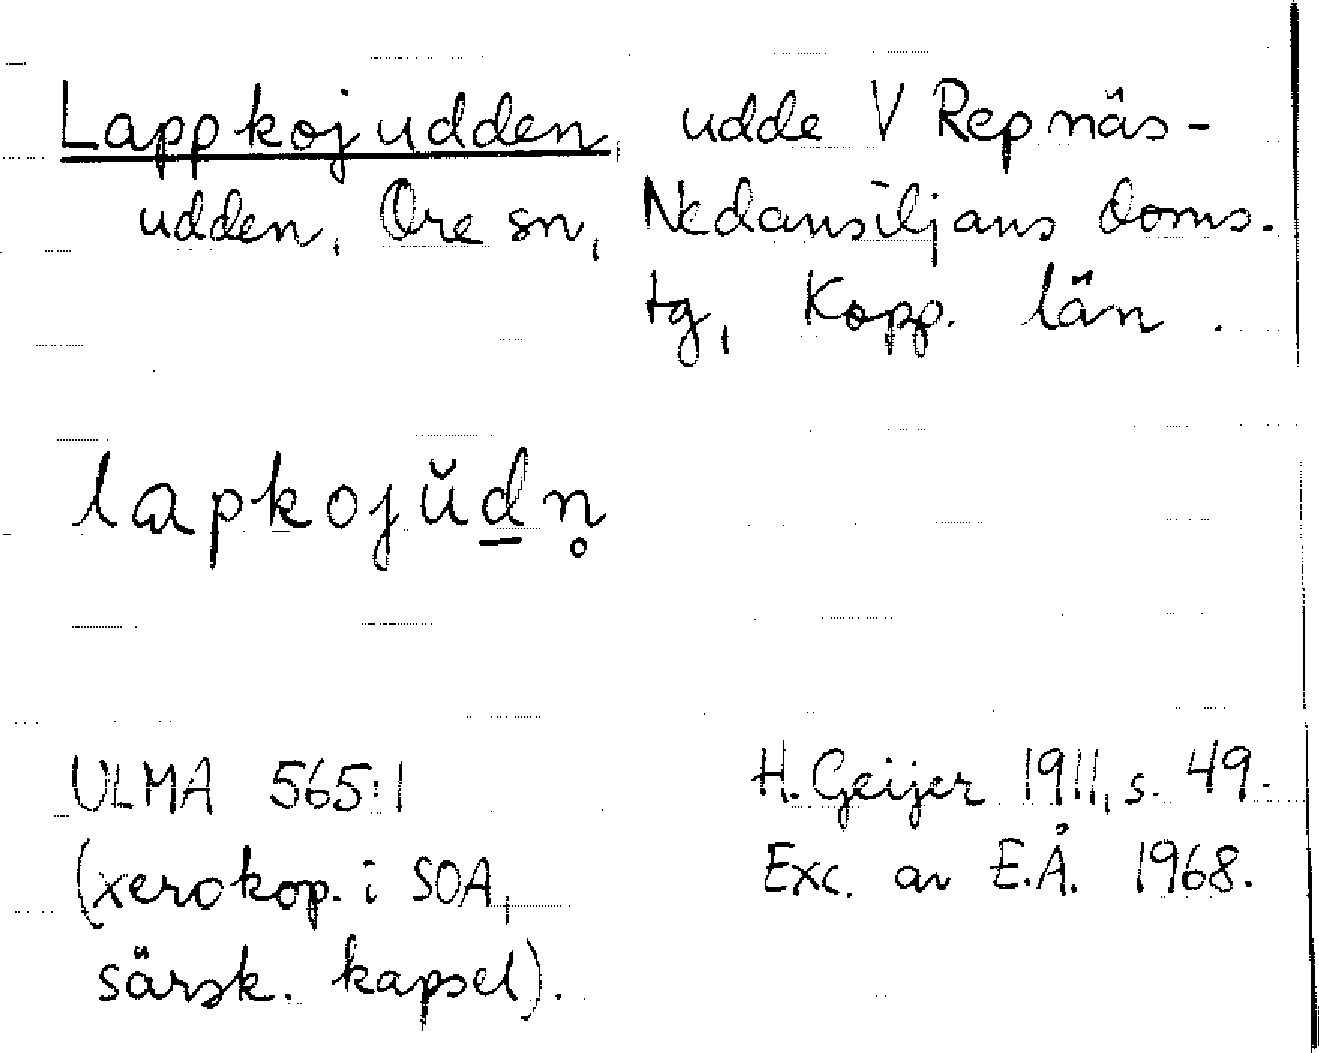 Lappkojudden, udde V Repnäs-
udden, Ore sn, Nedansiljans doms.
tg, Kopp. län.
lapkojŭd̲n̥
ULMA 565:1
(xerokop. i SOA,
särsk. kapsel).
H. Geijer 1911, s. 49.
Exc. av E.Å. 1968.